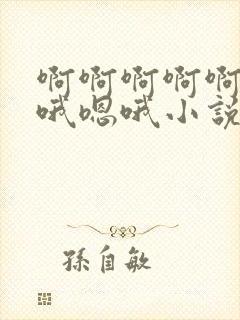 啊啊啊啊啊
哦嗯哦小説
孫自敏